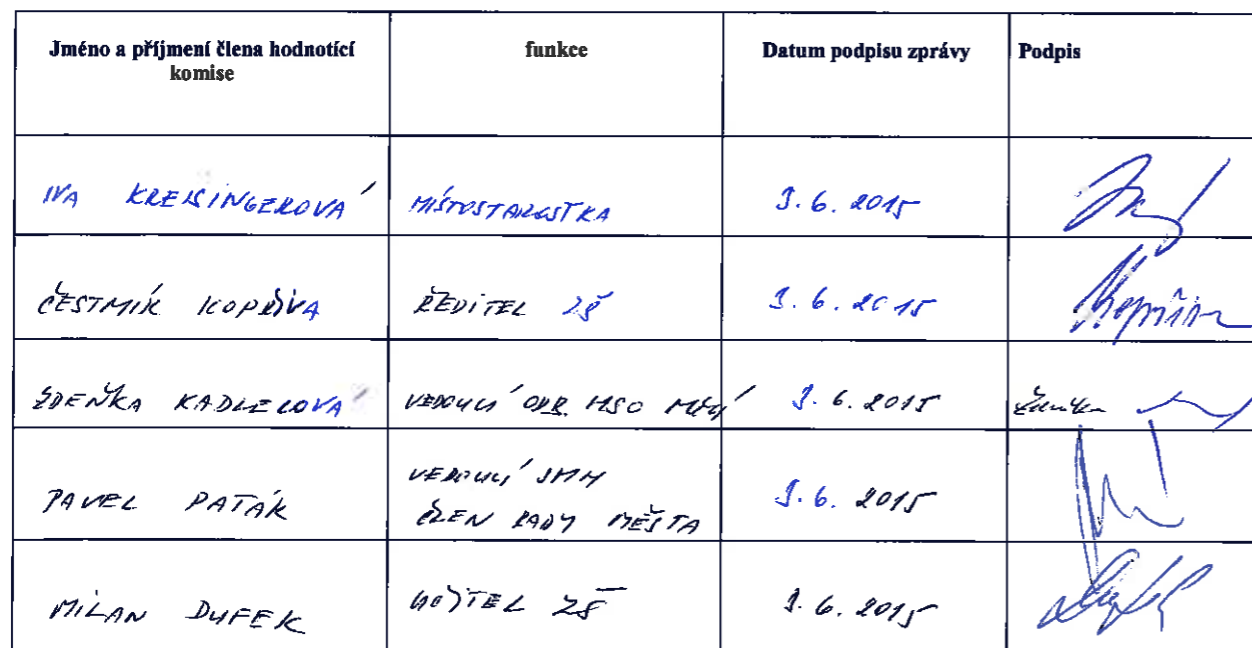 Jméno a příjmení člena hodnotící
komise
funkce
Datum podpisu zprávy
Podpis
IVA KREISINGEROVÁ MÍSTOSTAROSTKA 9. 6. 2015
ČESTMÍR KOPŘIVA ŘEDITEL ZŠ 9. 6. 2015
ZDEŇKA KADLECOVÁ VEDOUCÍ ODB. HSO 9. 6. 2015
PAVEL PATÁK VEDOUCÍ SMH
ČLEN RADY MĚSTA 9. 6. 2015
MILAN DUFEK UČITEL ZŠ 9. 6. 2015